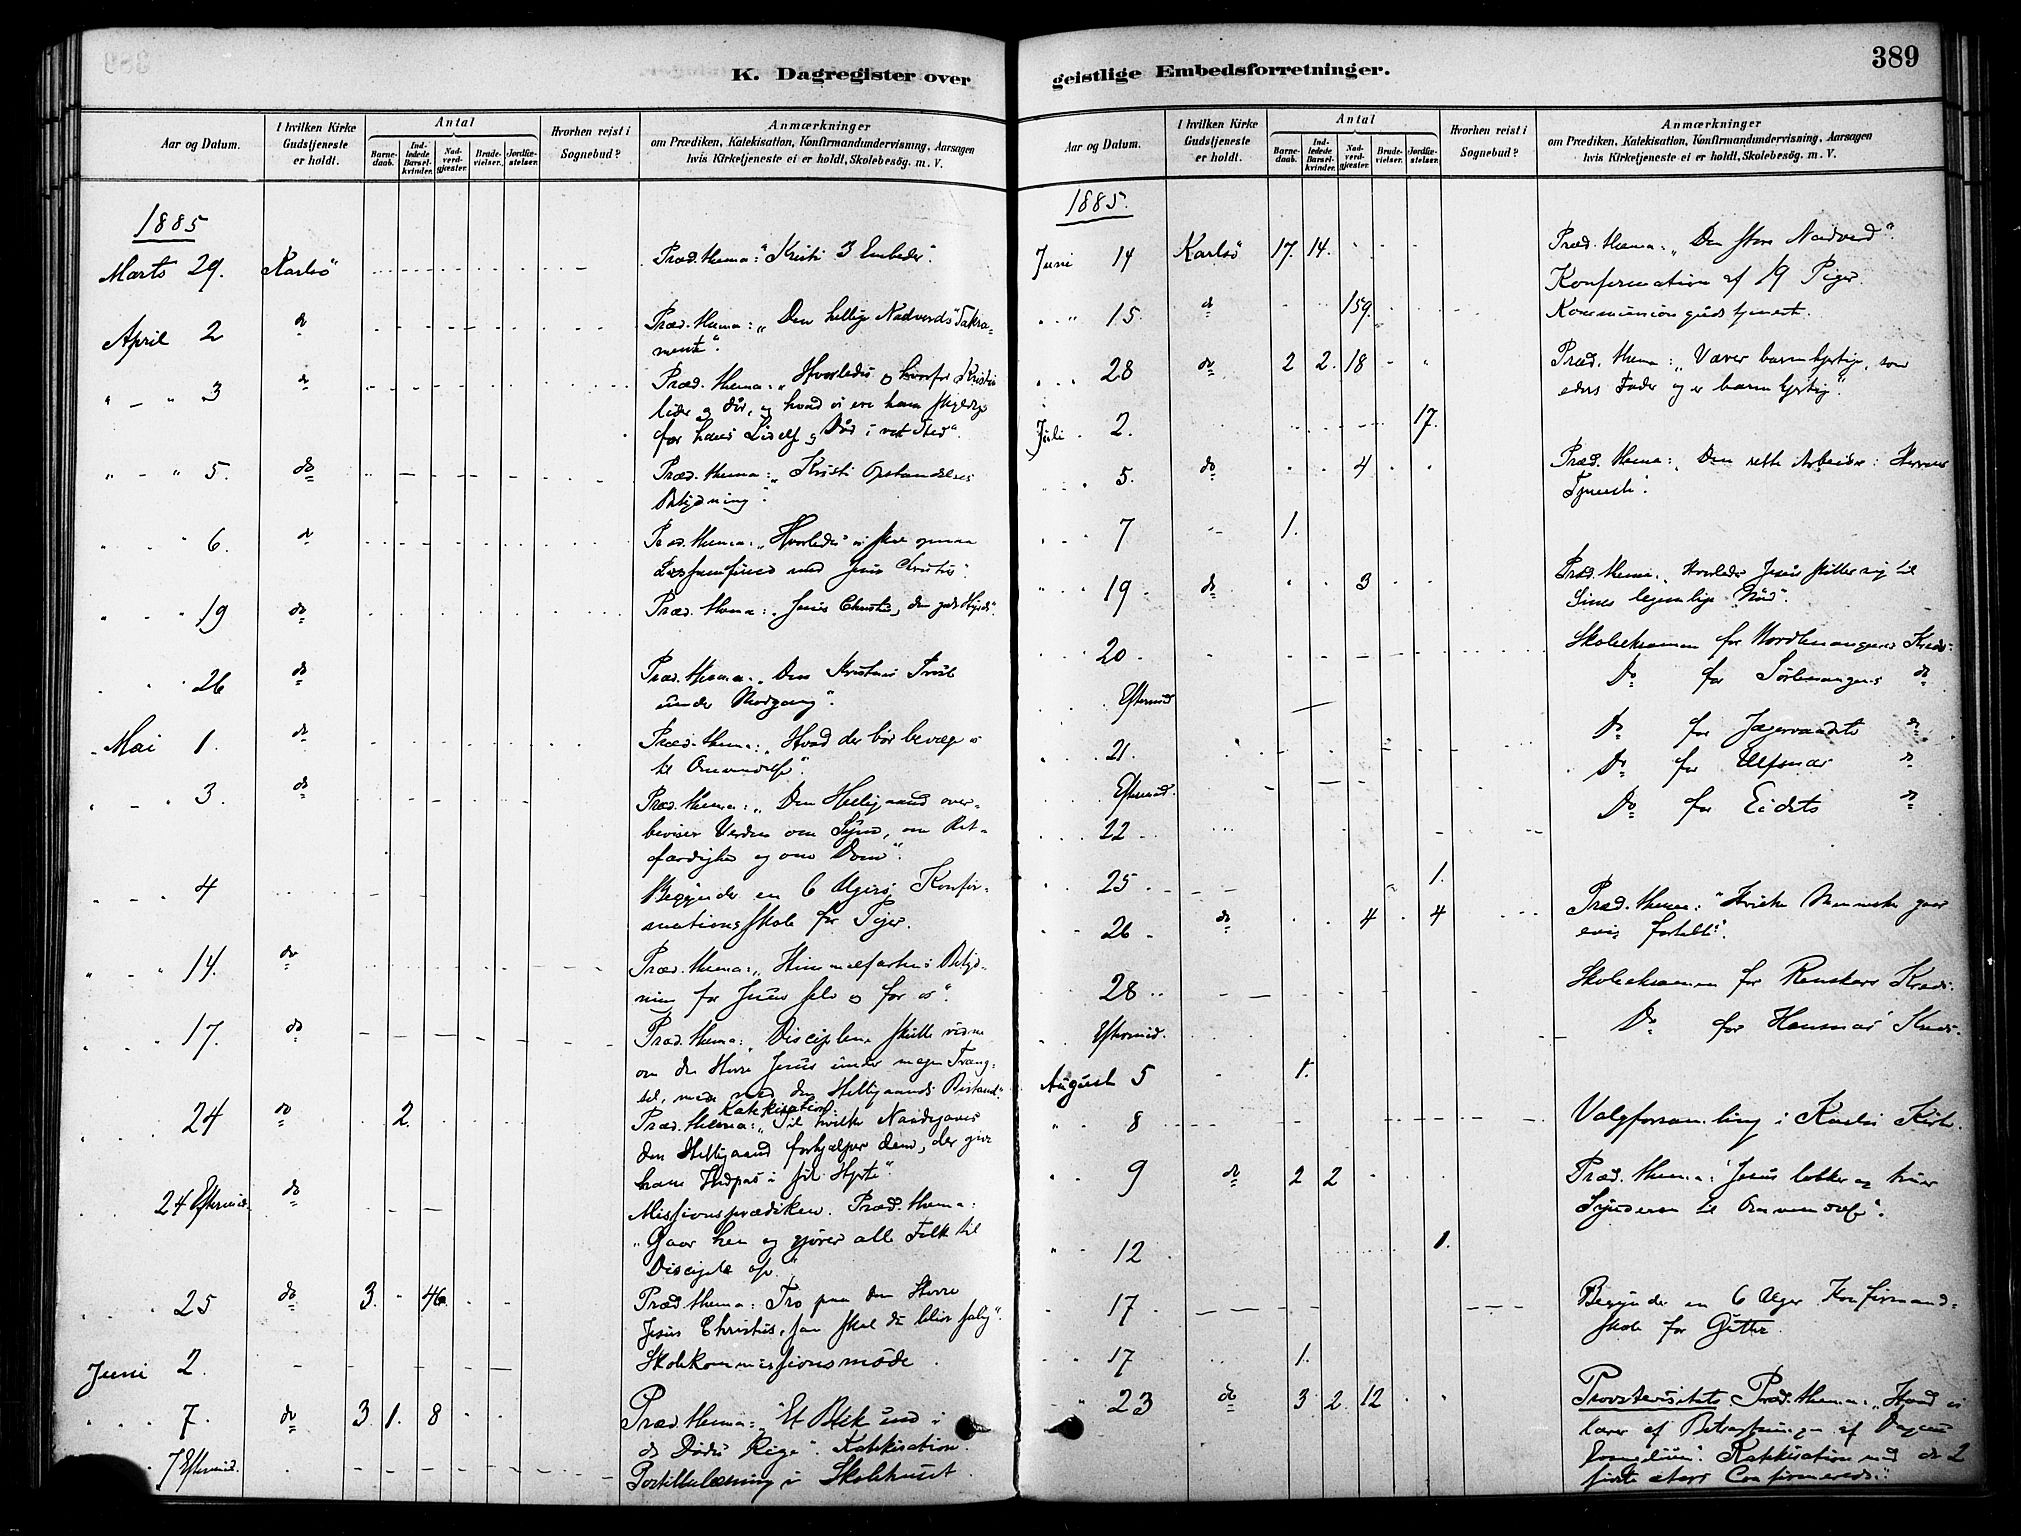 K. Dagregister over
Aar og Datum.
I hvilken Kirke Gudstjeneste er holdt.
Antal
Barne-daab.
Ind-ledede Barsel-kvinder.
Nad-verd-gjæster.
Brude-vielser.
Jordfæ-stelser.
Hvorhen reist i Sognebud?
Anmærkninger
om Prædiken, Katekisation, Konfirmandundervisning, Aarsagen
hvis Kirketjeneste ei er holdt, Skolebesøg. m. V.
1885
Marts 29. Karlsö Præd. thema: "Kristi 3 Embeder".
April 2 do Præd. thema: "Den hellige Nadverds Sakra-
mente".
" - " 3 do Præd. thema: "Hvorledes og hvorfor Kristus
lider og dör, og hvad vi ere ham skyldige
for hans Lidelse og Död i vort Sted".
" - " 5. do Præd. thema: "Kristi Opstandelses
Betydning".
" " 6. do Præd. thema: "Hvorledes vi skal opnaa
Livssamfund med Jesus Christus".
" - " 19 do Præd. thema: "Jesus Christus, den gode Hyrde".
" " 26 do Præd. thema: "Den Kristnes Tröst
under Modgang".
Mai 1. do Præd. thema: "Hvad der bör bevæge os
til Omvendelse".
" - " 3. do Præd. thema: "Den Helligaand over-
beviser Verden om Synd, om Ret-
færdighed og om Dom".
" - " 4 Begynder en 6 Ugers Konfir-
mationsskole for Piger.
" - " 14. do Præd. thema: "Himmelfartens Betyd-
ning for Jesus selv og for os".
" " 17. do Præd. thema: "Disciplene skulle vidne
om den Herre Jesus under megen Træng-
sel, men med den Helligaands Bistand".
Katekisation.
" " 24 do 2. Præd. thema: "Til hvilke Naadegaver
den Helligaand forhjælper dem, der give
ham Indpas i sit Hjerte".
24 Eftermid. do Missionsprædiken. Præd. thema:
"Gaar hen og gjörer alle Folk til
Disciple osv."
" " 25 do 3. 46. Præd. thema: "Tro paa den Herre
Jesus Christus, saa skal du blive salig".
Juni 2. Skolekommissionsmöde.
" " 7. do 3. 1. 8 Præd. thema: "Et Blik ind i
de Dödes Rige". Katekisation.
7 Eftermid. Postillelæsning i Skolehuset.
geistlige Embedsforretninger.
389
Aar og Datum.
I hvilken Kirke Gudstjeneste er holdt.
Antal
Barne-daab.
Ind-ledede Barsel-kvinder.
Nad-verd-gjæster.
Brude-vielser.
Jordfæ-stelser.
Hvorhen reist i Sognebud?
Anmærkninger
om Prædiken, Katekisation, Konfirmandundervisning, Aarsagen
hvis Kirketjeneste ei er holdt, Skolebesøg. m. V.
1885.
Juni 14 Karlsö 17. 14. Præd. thema: "Den store Nadverd".
Konfirmation af 19 Piger.
" 15. do 159. Kommuniongudstjeneste.
" 28 do 2 2. 18 Præd. thema: "Værer barmhjertige, som
eders Fader og er barmhjertig".
Juli 2. 17.
" 5. do 4 Præd. thema: "Den rette Arbeider i Herrens
Tjeneste".
" 7 1.
" 19 do 3 Præd. thema: "Hvorledes Jesus stiller sig til
Sines legemlige Nöd".
" 20 Skoleeksamen for Nordlenangens Kreds.
Eftermid. Do for Sörlenangens do
" 21. Do for Jægervandets do
Eftermid. Do for Ulfsnæs do
" 22 Do for Eidets do
" 25 1.
" 26 do 4 4 Præd. thema: "Hvilke Mennesker gaar
evig fortabt".
" 28 Skoleeksamen for Renskars Kreds.
Eftermid. Do for Hansnæs Kreds.
August 5 1.
" 8 Valgforsamling i Karlsö Kirke.
" 9 do 2 2 Præd. thema: "Jesus lokker og truer
Synderen til Omvendelse".
" 12 1.
" 17 Begynder en 6 Uger Konfirmand-
skole for Gutter.
" 17 1.
" 23 do 3 2. 12 Provstevisitats Præd. thema: "Hvad vi
lærer af Betragtningen af Dagens
Evangelium". Katekisation med de 2
sidste Aars Confirmerede.